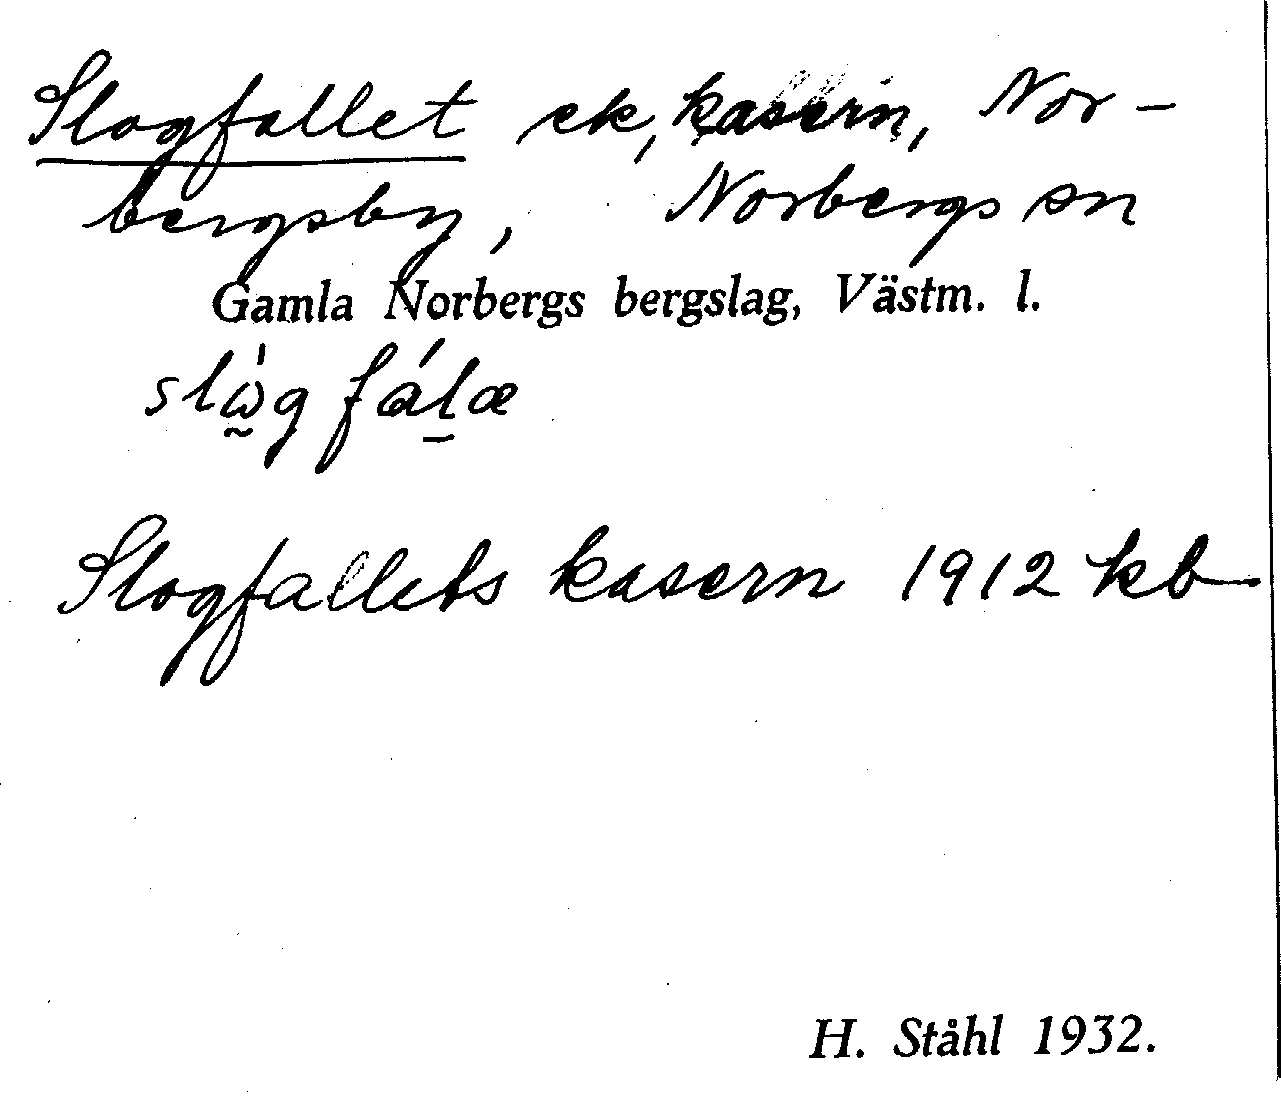 Slogfallet ck, kasern, Nor-
bergsby, Norbergs sn
Gamla Norbergs bergslag, Västm. l.
Slogfallets kasern 1912 kb
H. Ståhl 1932.